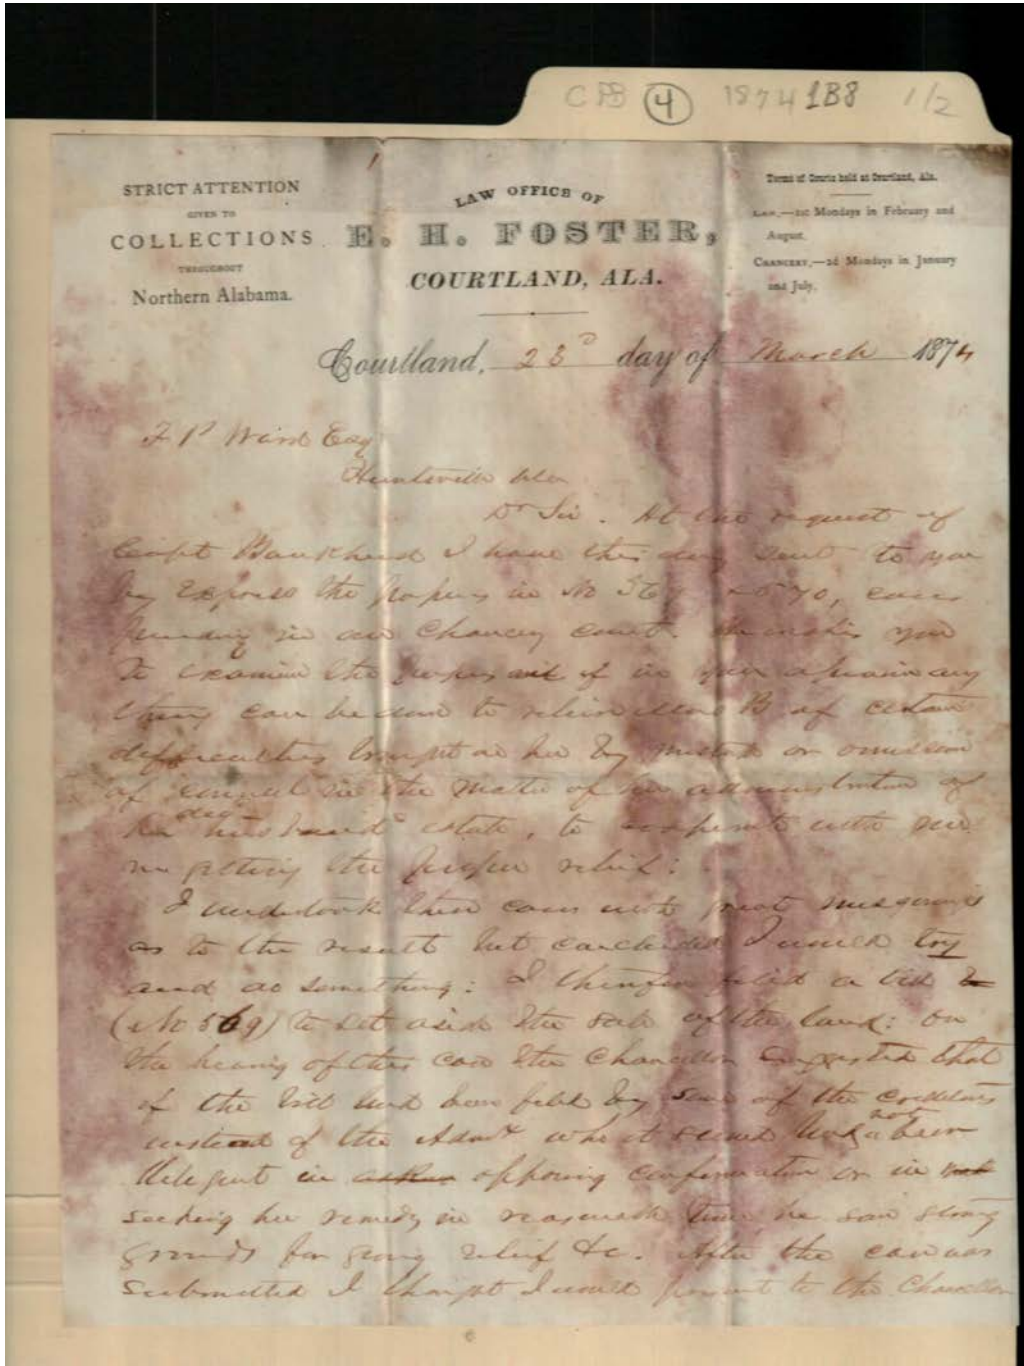 CPB 4 1874 1B8 1/2
STRICT ATTENTION
GIVEN TO
COLLECTIONS
THROUGHOUT
Northern Alabama.
LAW OFFICE OF
E. H. FOSTER,
COURTLAND, ALA.
Terms of Courts held at Courtland, Ala.
LAW,—1st Mondays in February and
August.
CHANCERY,—2d Mondays in January
and July.
Courtland, 23d day of March 1874
Ward Esq
Huntsville Ala
Dr Sir. At the request of
Capt Bankhead I have this day sent to you
by Express the papers in No 569 & 570, cases
pending in our Chancery court. He wishes you
to examine the papers and if in your opinion any
thing can be done to relieve Mrs B of certain
difficulties brought on her by mistake or omission
of counsel in the matter of her administration of
her decd husband's estate, to cooperate with me
in getting the proper relief:
I undertook these cases with great misgivings
as to the result but concluded I would try
and do something: I therefore filed a bill
(No 569) to set aside the sale of the land: On
the hearing of this case the Chancellor suggested that
if the bill had been filed by some of the creditors
instead of the Admx who it seemed had not been
diligent in opposing confirmation or in not
seeking her remedy in reasonable time he saw strong
grounds for giving relief &c. After the case was
submitted I thought I would present to the Chancellor